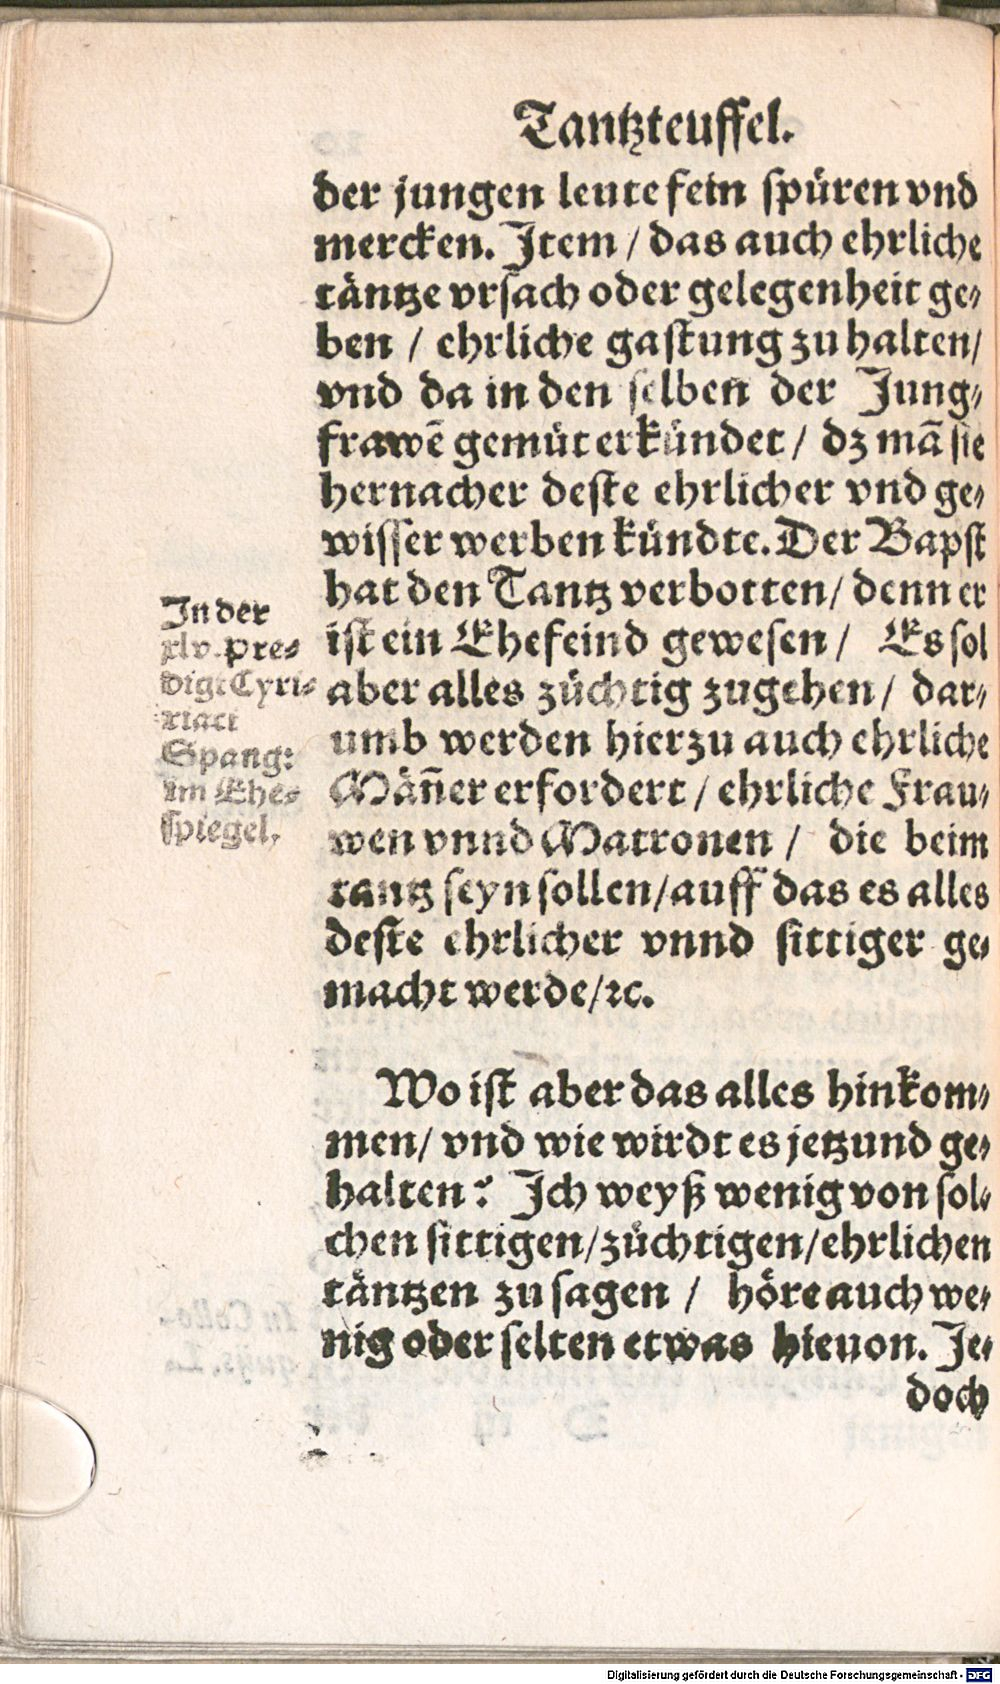 Tantzteuffel.
der jungen leute fein spüren vnd
mercken. Item / das auch ehrliche
täntze vrsach oder gelegenheit ge⸗
ben / ehrliche gastung zu halten/
vnd da in den selben der Jung⸗
frawē gemüt erkündet / dz mā sie
hernacher deste ehrlicher vnd ge⸗
wisser werben kündte. Der Bapst
hat den Tantz verbotten / denn er
ist ein Ehefeind gewesen / Es sol
aber alles züchtig zugehen / dar⸗
umb werden hierzu auch ehrliche
Män̄er erfordert / ehrliche Frau⸗
wen vnnd Matronen / die beim
tantz seyn sollen/auff das es alles
deste ehrlicher vnnd sittiger ge⸗
macht werde/ꝛc.
In der
xlv. Pre⸗
digt Cyri⸗
riaci
Spang:
im Ehe⸗
spiegel.
Wo ist aber das alles hinkom⸗
men/ vnd wie wirdt es jetzund ge⸗
halten? Ich weyß wenig von sol⸗
chen sittigen/züchtigen/ehrlichen
täntzen zu sagen / höre auch we⸗
nig oder selten etwas hieuon. Je⸗
doch
Digitalisierung gefördert durch die Deutsche Forschungsgemeinschaft - DFG